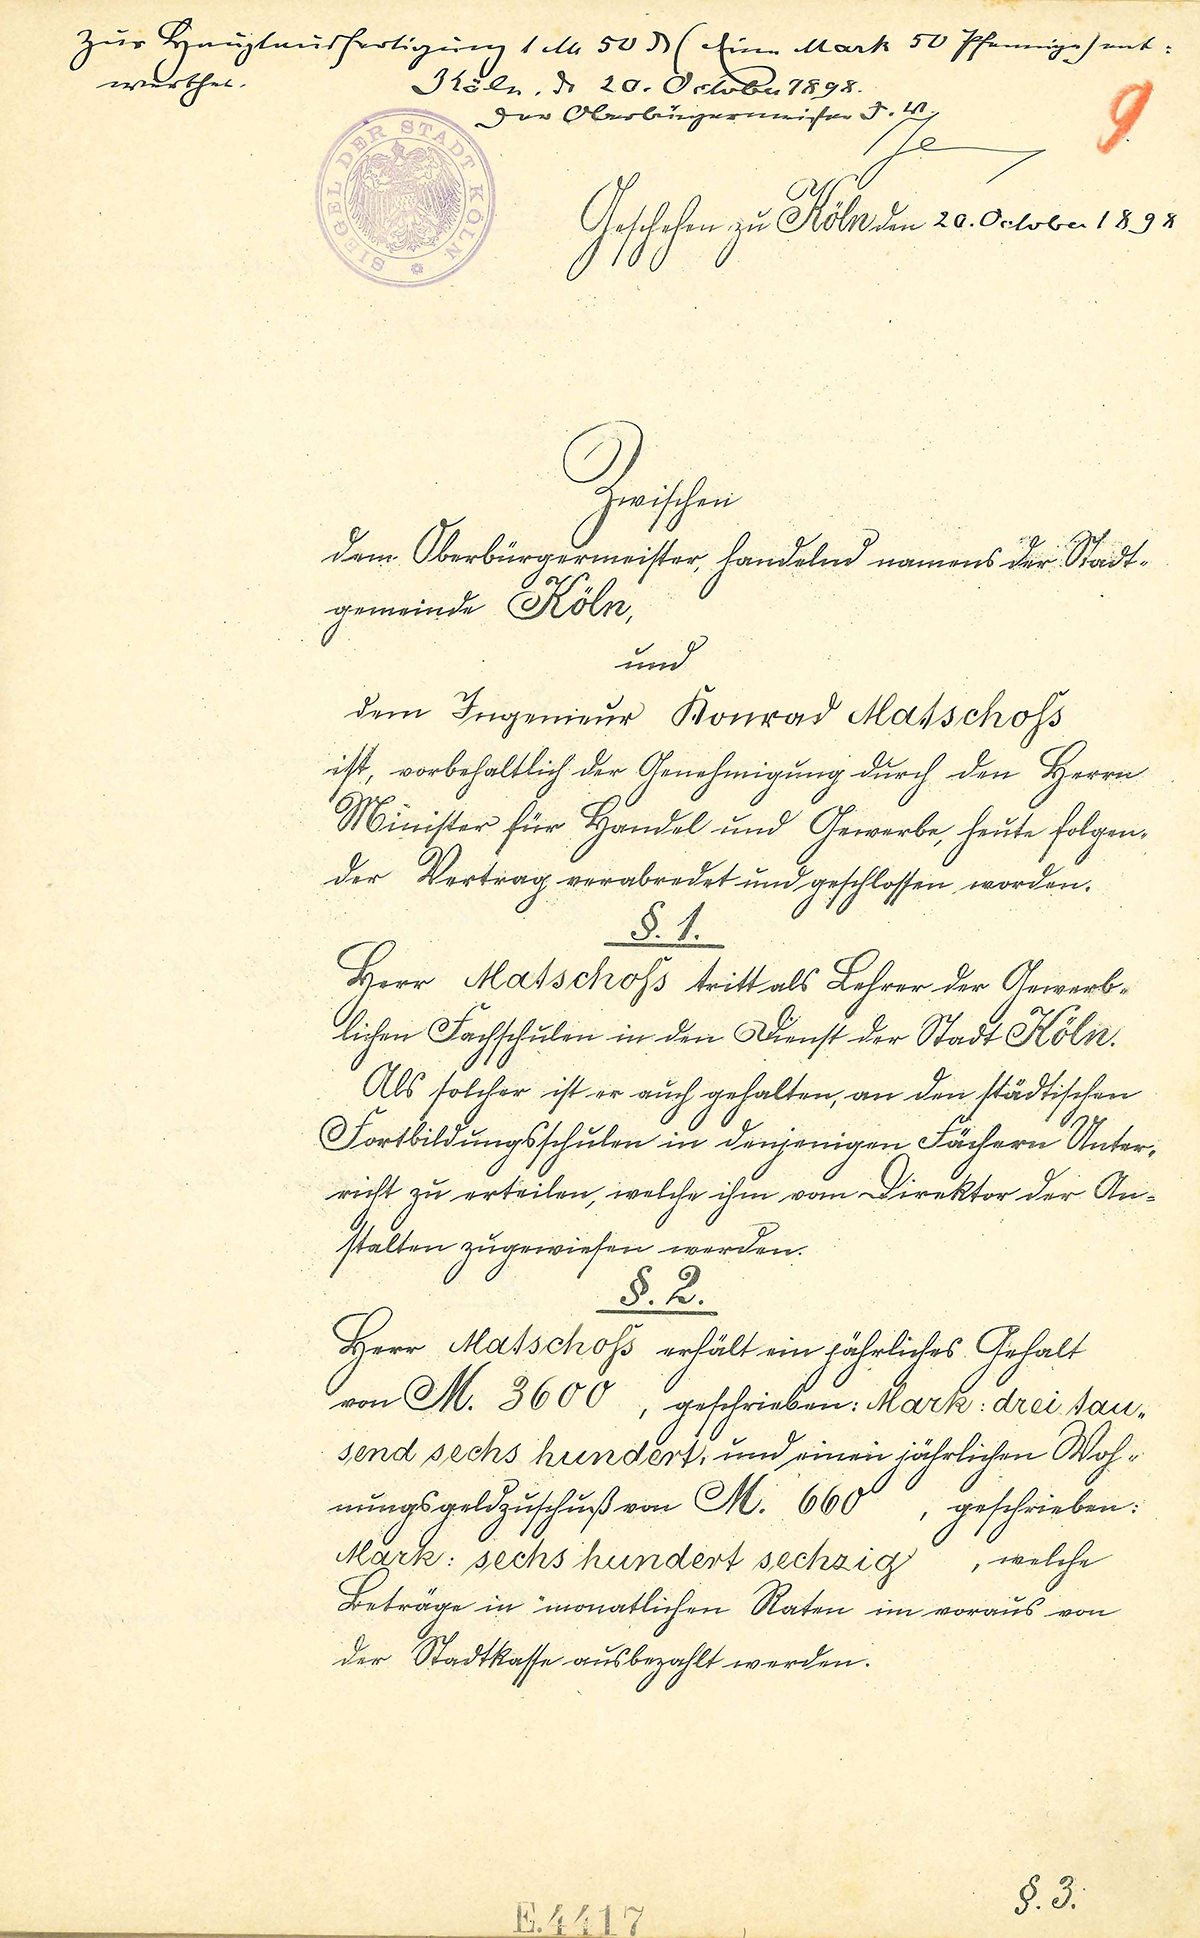 Zur Hauptausfertigung 1 M 50 ₰ (Eine Mark 50 Pfennige) ent:
werthet.
Köln, d 20. October 1898.
Der Oberbürgermeister J. V.
9
SIEGEL DER STADT KÖLN
Geschehen zu Köln den 20. October 1898
Zwischen
dem Oberbürgermeister, handelnd namens der Stadt-
gemeinde Köln,
und
dem Ingenieur Konrad Matschoss
ist, vorbehaltlich der Genehmigung durch den Herrn
Minister für Handel und Gewerbe, heute folgen-
der Vertrag verabredet und geschlossen worden.
§. 1.
Herr Matschoss tritt als Lehrer der Gewerb-
lichen Fachschulen in den Dienst der Stadt Köln.
Als solcher ist er auch gehalten, an den städtischen
Fortbildungsschulen in denjenigen Fächern Unter-
richt zu erteilen, welche ihm vom Direktor der An-
stalten zugewiesen werden.
§. 2.
Herr Matschoss erhält ein jährliches Gehalt
von M. 3600, geschrieben: Mark: drei tau-
send sechs hundert, und einen jährlichen Woh-
nungsgeldzuschuß von M. 660, geschrieben:
Mark: sechs hundert sechzig, welche
Beträge in monatlichen Raten im voraus von
der Stadtkasse ausbezahlt werden.
§. 3.
E.4417